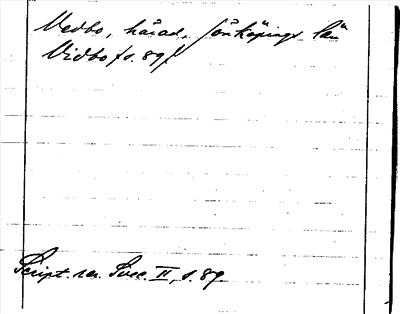 Vedbo, härad, Jönköpings län
Vidbo /s. 89/
Script. rer. Svec. II, s. 89